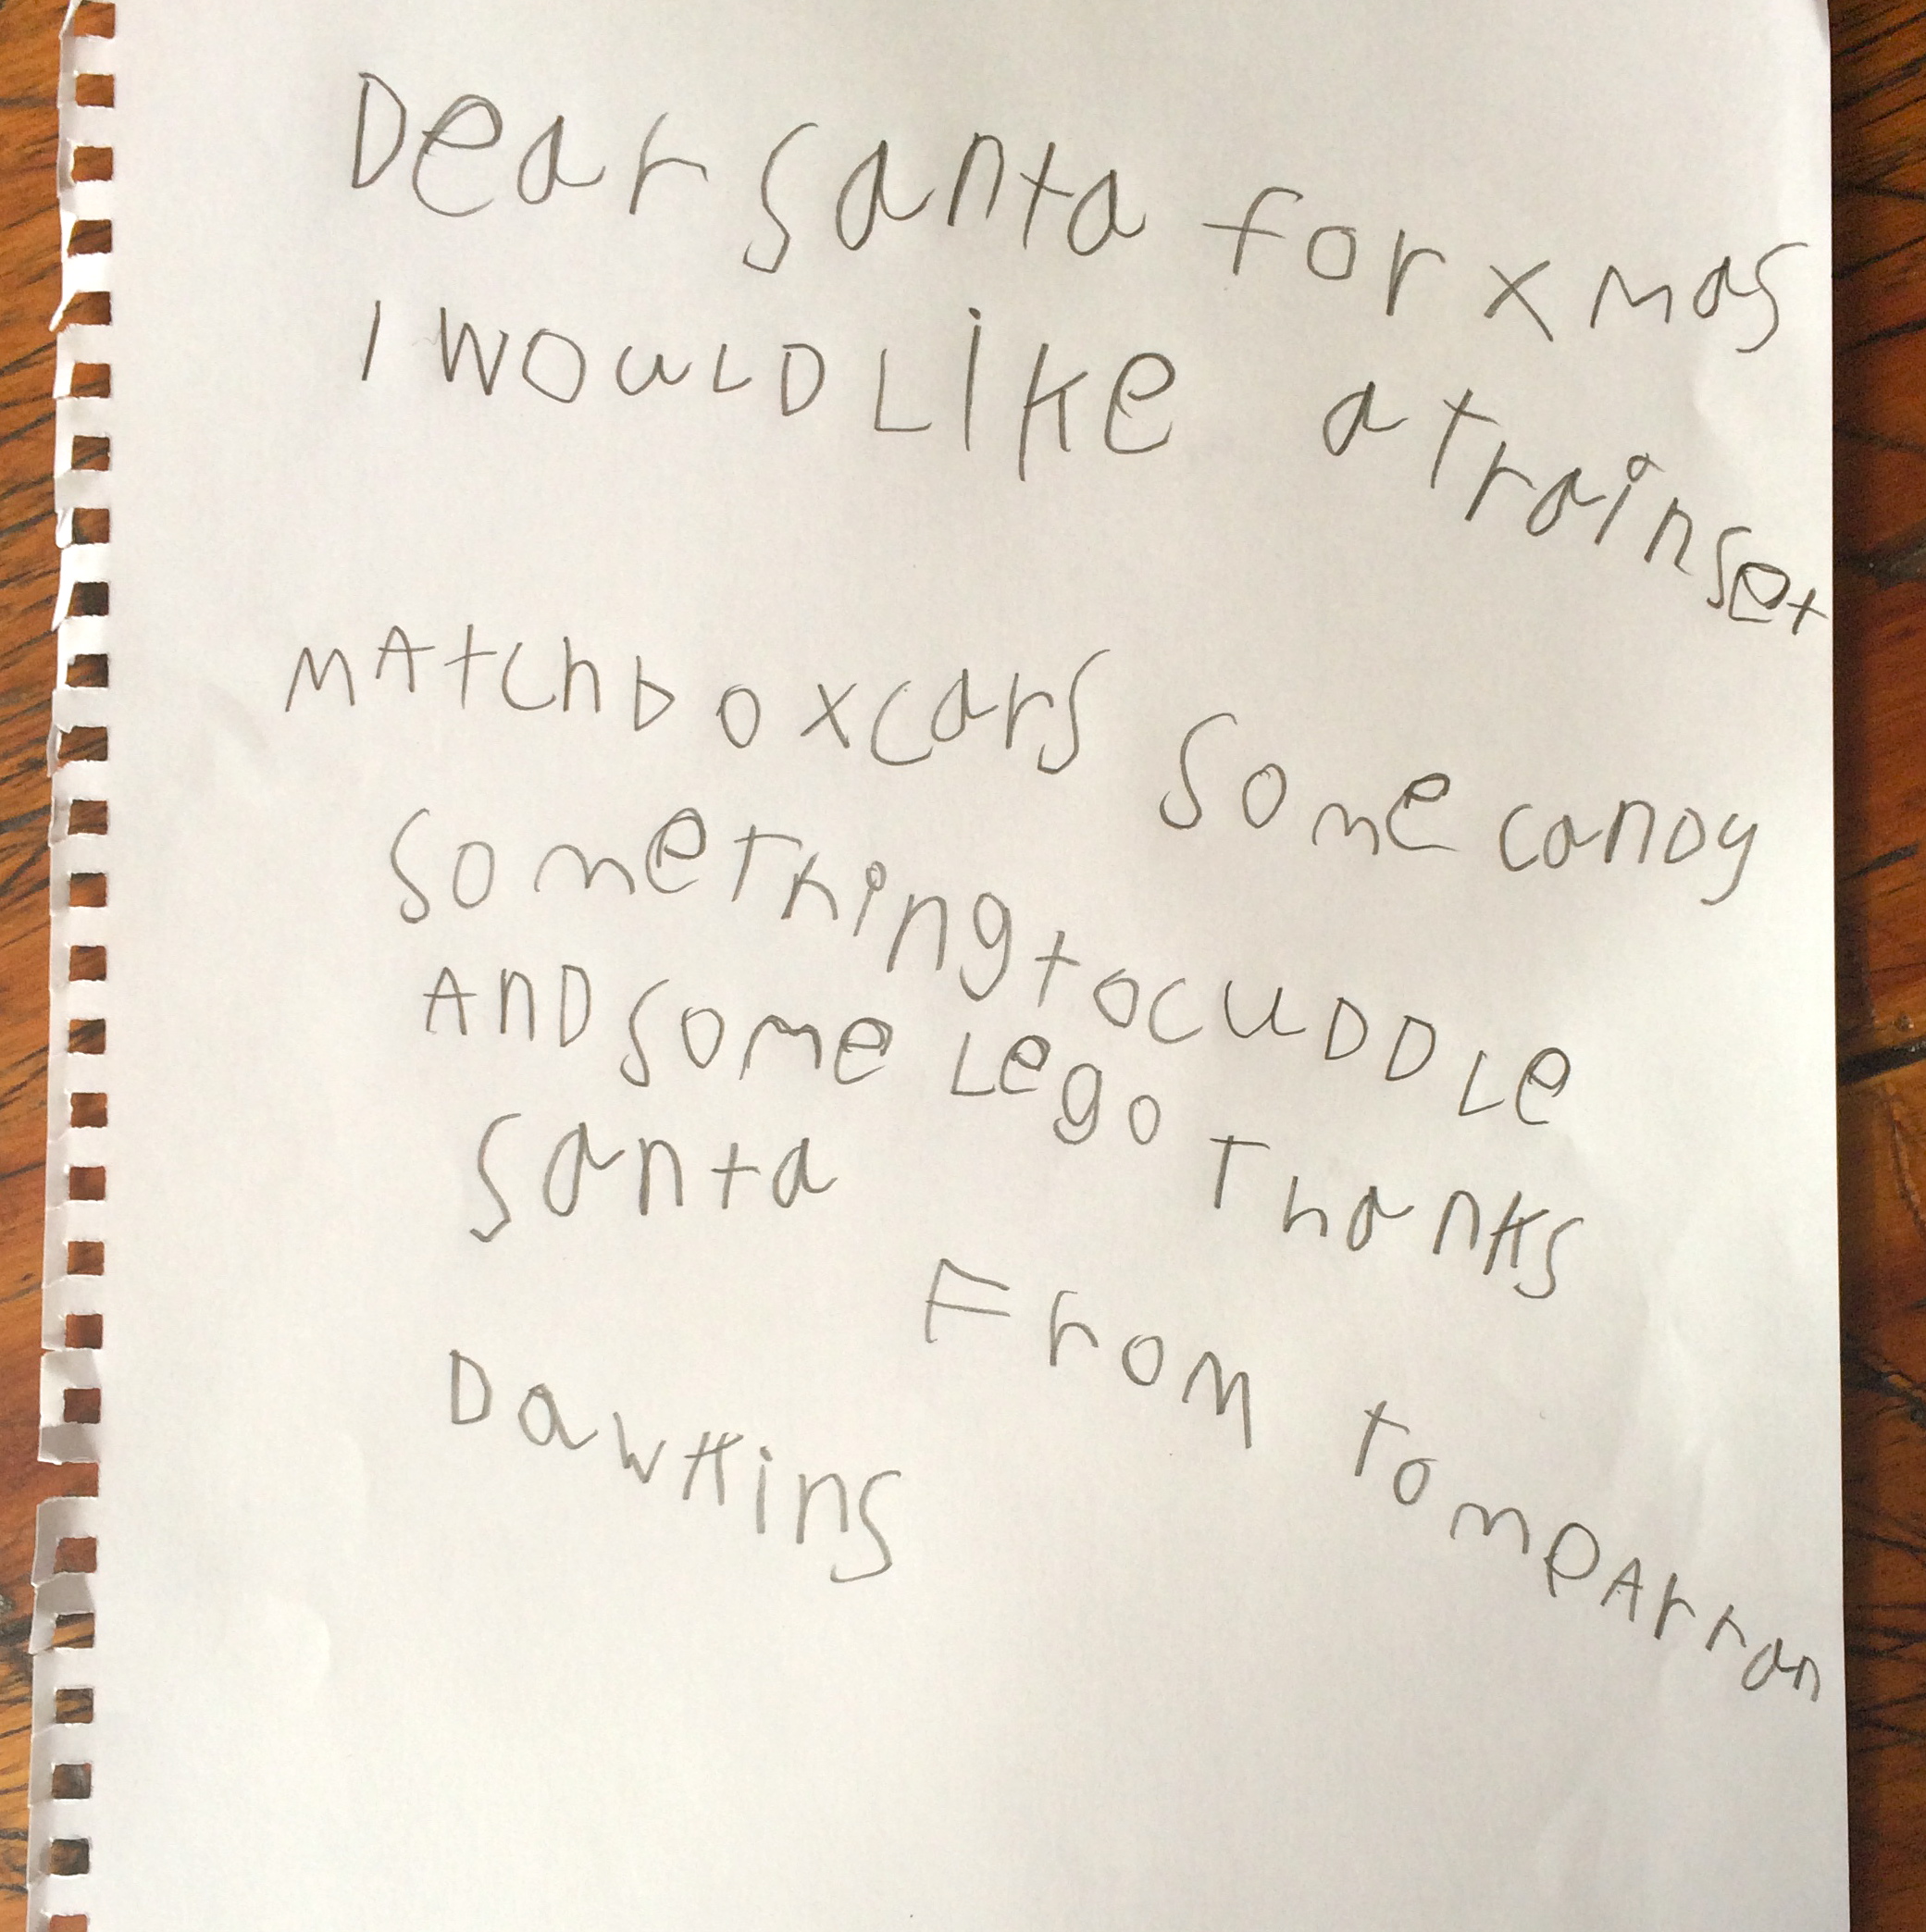 Dear Santa for xmas
I WOuLD LiKe a trainset
MAtchboxcars Some canDy
SomeThingtocuDDLe
AnDSome Lego Thanks
Santa
From TomPArran
DawKins